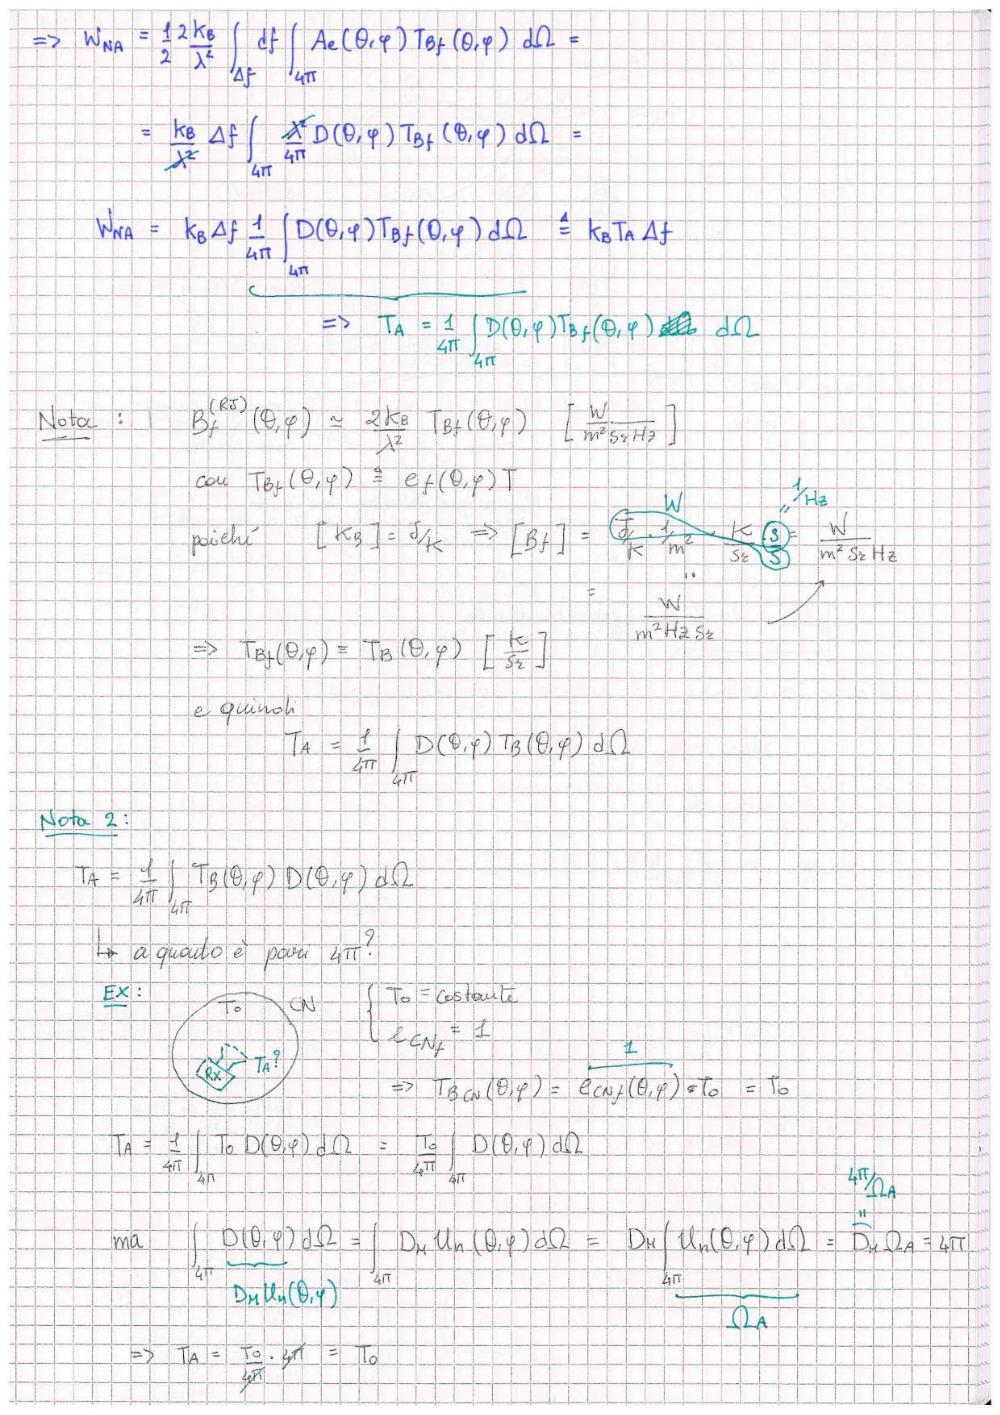 => W_NA = 1/2 2k_B/λ² ∫_Δf df ∫_4π Ae(θ,φ) T_Bf(θ,φ) dΩ =
= k_B/λ² Δf ∫_4π λ²/4π D(θ,φ) T_Bf(θ,φ) dΩ =
W_NA = k_B Δf 1/4π ∫_4π D(θ,φ) T_Bf(θ,φ) dΩ ≜ k_B T_A Δf
=> T_A = 1/4π ∫_4π D(θ,φ) T_Bf(θ,φ) dΩ
Nota : B_f^(RJ)(θ,φ) ≃ 2k_B/λ² T_Bf(θ,φ) [W/m² Sr Hz]
con T_Bf(θ,φ) ≜ e_f(θ,φ) T
W 1/Hz
poiché [k_B] = J/K => [B_f] = J/K · 1/m² · K/Sr S/S = W/m² Sr Hz
= W/m² Hz Sr
=> T_Bf(θ,φ) = T_B(θ,φ) [K/Sr]
e quindi
T_A = 1/4π ∫_4π D(θ,φ) T_B(θ,φ) dΩ
Nota 2:
T_A = 1/4π ∫_4π T_B(θ,φ) D(θ,φ) dΩ
↳ a quanto è pari 4π?
EX: T_0 CN { T_0 = costante
e_CNf = 1
RX T_A? 1
=> T_BCN(θ,φ) = e_CNf(θ,φ) • T_0 = T_0
T_A = 1/4π ∫_4π T_0 D(θ,φ) dΩ = T_0/4π ∫_4π D(θ,φ) dΩ
4π/Ω_A
"
ma ∫_4π D(θ,φ) dΩ = ∫_4π D_M U_n(θ,φ) dΩ = D_M ∫_4π U_n(θ,φ) dΩ = D_M Ω_A = 4π
D_M U_n(θ,φ) Ω_A
=> T_A = T_0/4π · 4π = T_0